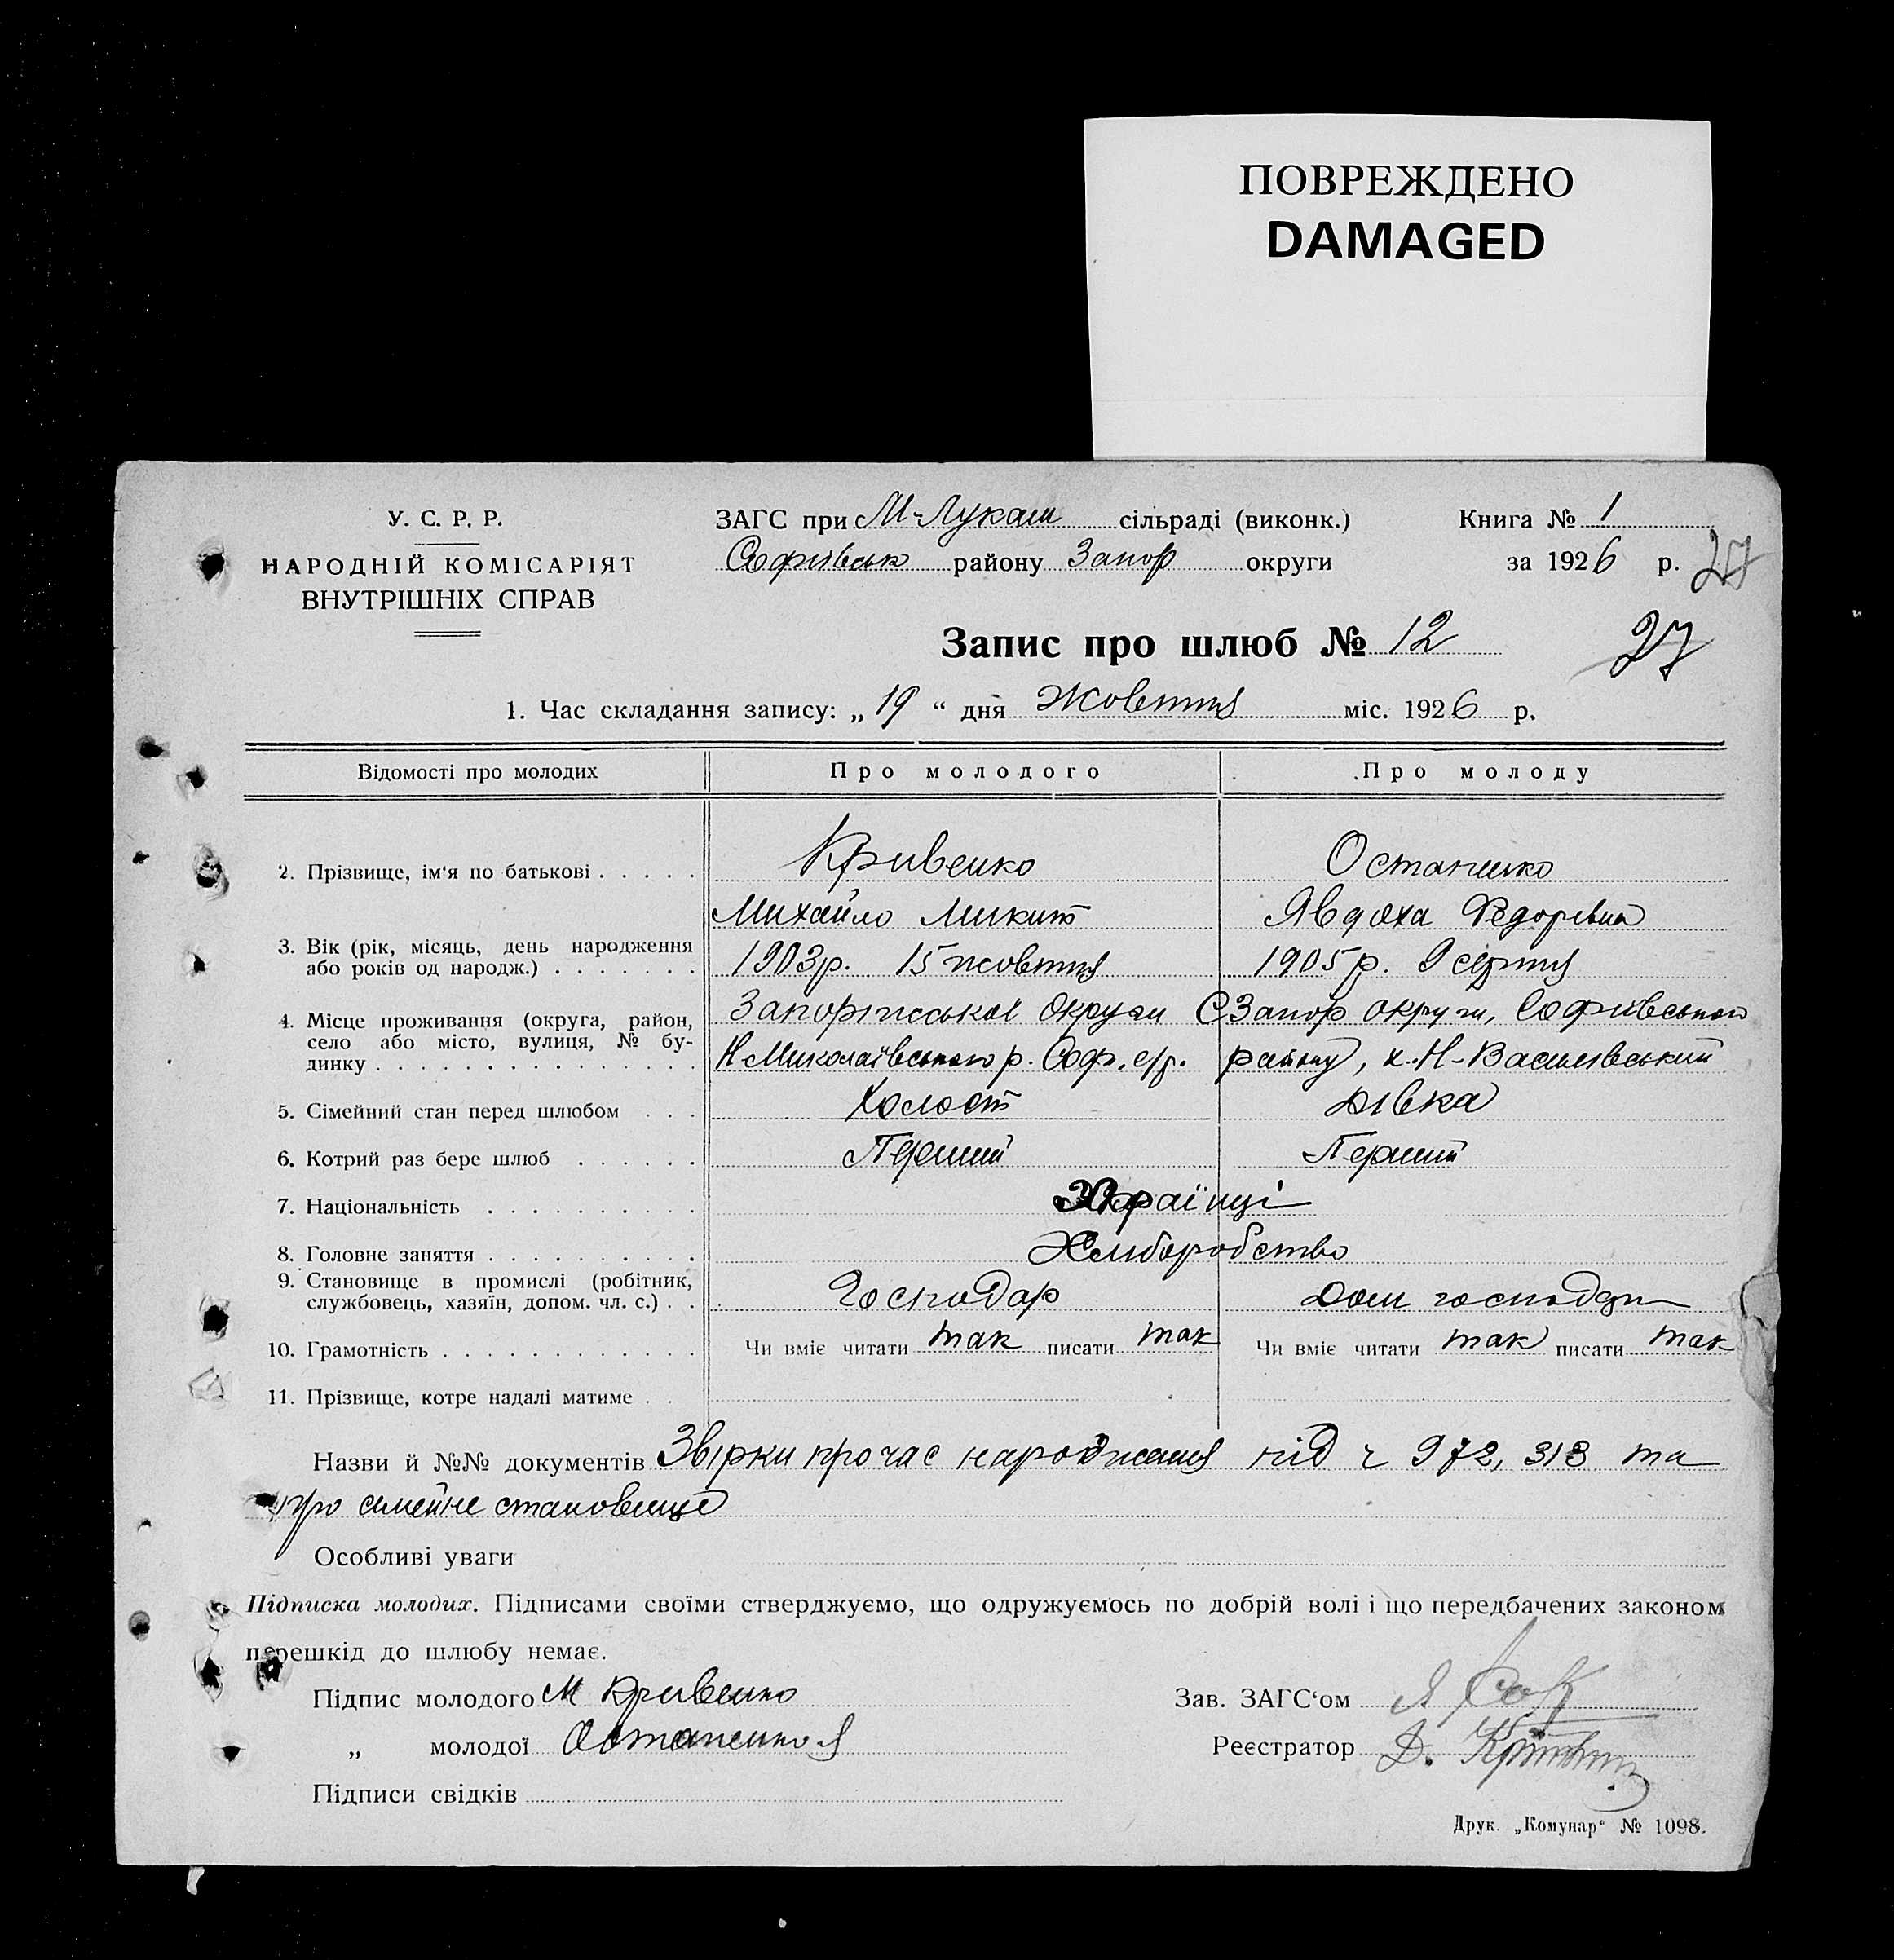 ПОВРЕЖДЕНО
DAMAGED
У. С. Р. Р.
НАРОДНІЙ КОМІСАРІЯТ
ВНУТРІШНІХ СПРАВ
ЗАГС при М-Лукаш сільраді (виконк.)
Софиівськ району Запор округи
Книга № 1
за 1926 р.
27
27
Запис про шлюб № 12
1. Час складання запису: „19“ дня Жовтня міс. 1926 р.
Відомості про молодих Про молодого Про молоду
2. Прізвище, ім'я по батькові Кривенко Остапенко
Михайло Микит Явдоха Федорівна
3. Вік (рік, місяць, день народження
або років од народж.) 1903р. 15 жовтня 1905р. 9 серпня
4. Місце проживання (округа, район,
село або місто, вулиця, № бу-
динку Запоріжської округи Запор округи, Софиівського
Н Миколаївського р. Соф. с/р. району, х. Н-Василівський
5. Сімейний стан перед шлюбом Холост Дівка
6. Котрий раз бере шлюб Перший Перший
7. Національність Українці
8. Головне заняття Хліборобство
9. Становище в промислі (робітник,
службовець, хазяїн, допом. чл. с.) Господар Дом господар
10. Грамотність Чи вміє читати так писати так Чи вміє читати так писати так
11. Прізвище, котре надалі матиме
Назви й №№ документів Звірки про час народження під ч 972, 313 та
про сімейне становище
Особливі уваги
Підписка молодих. Підписами своїми стверджуємо, що одружуємось по добрій волі і що передбачених законом
перешкід до шлюбу немає.
Підпис молодого М Кривенко
„ молодої Остапенко Я
Підписи свідків
Зав. ЗАГС'ом
Реєстратор Д.
Друк. „Комунар“ № 1098.